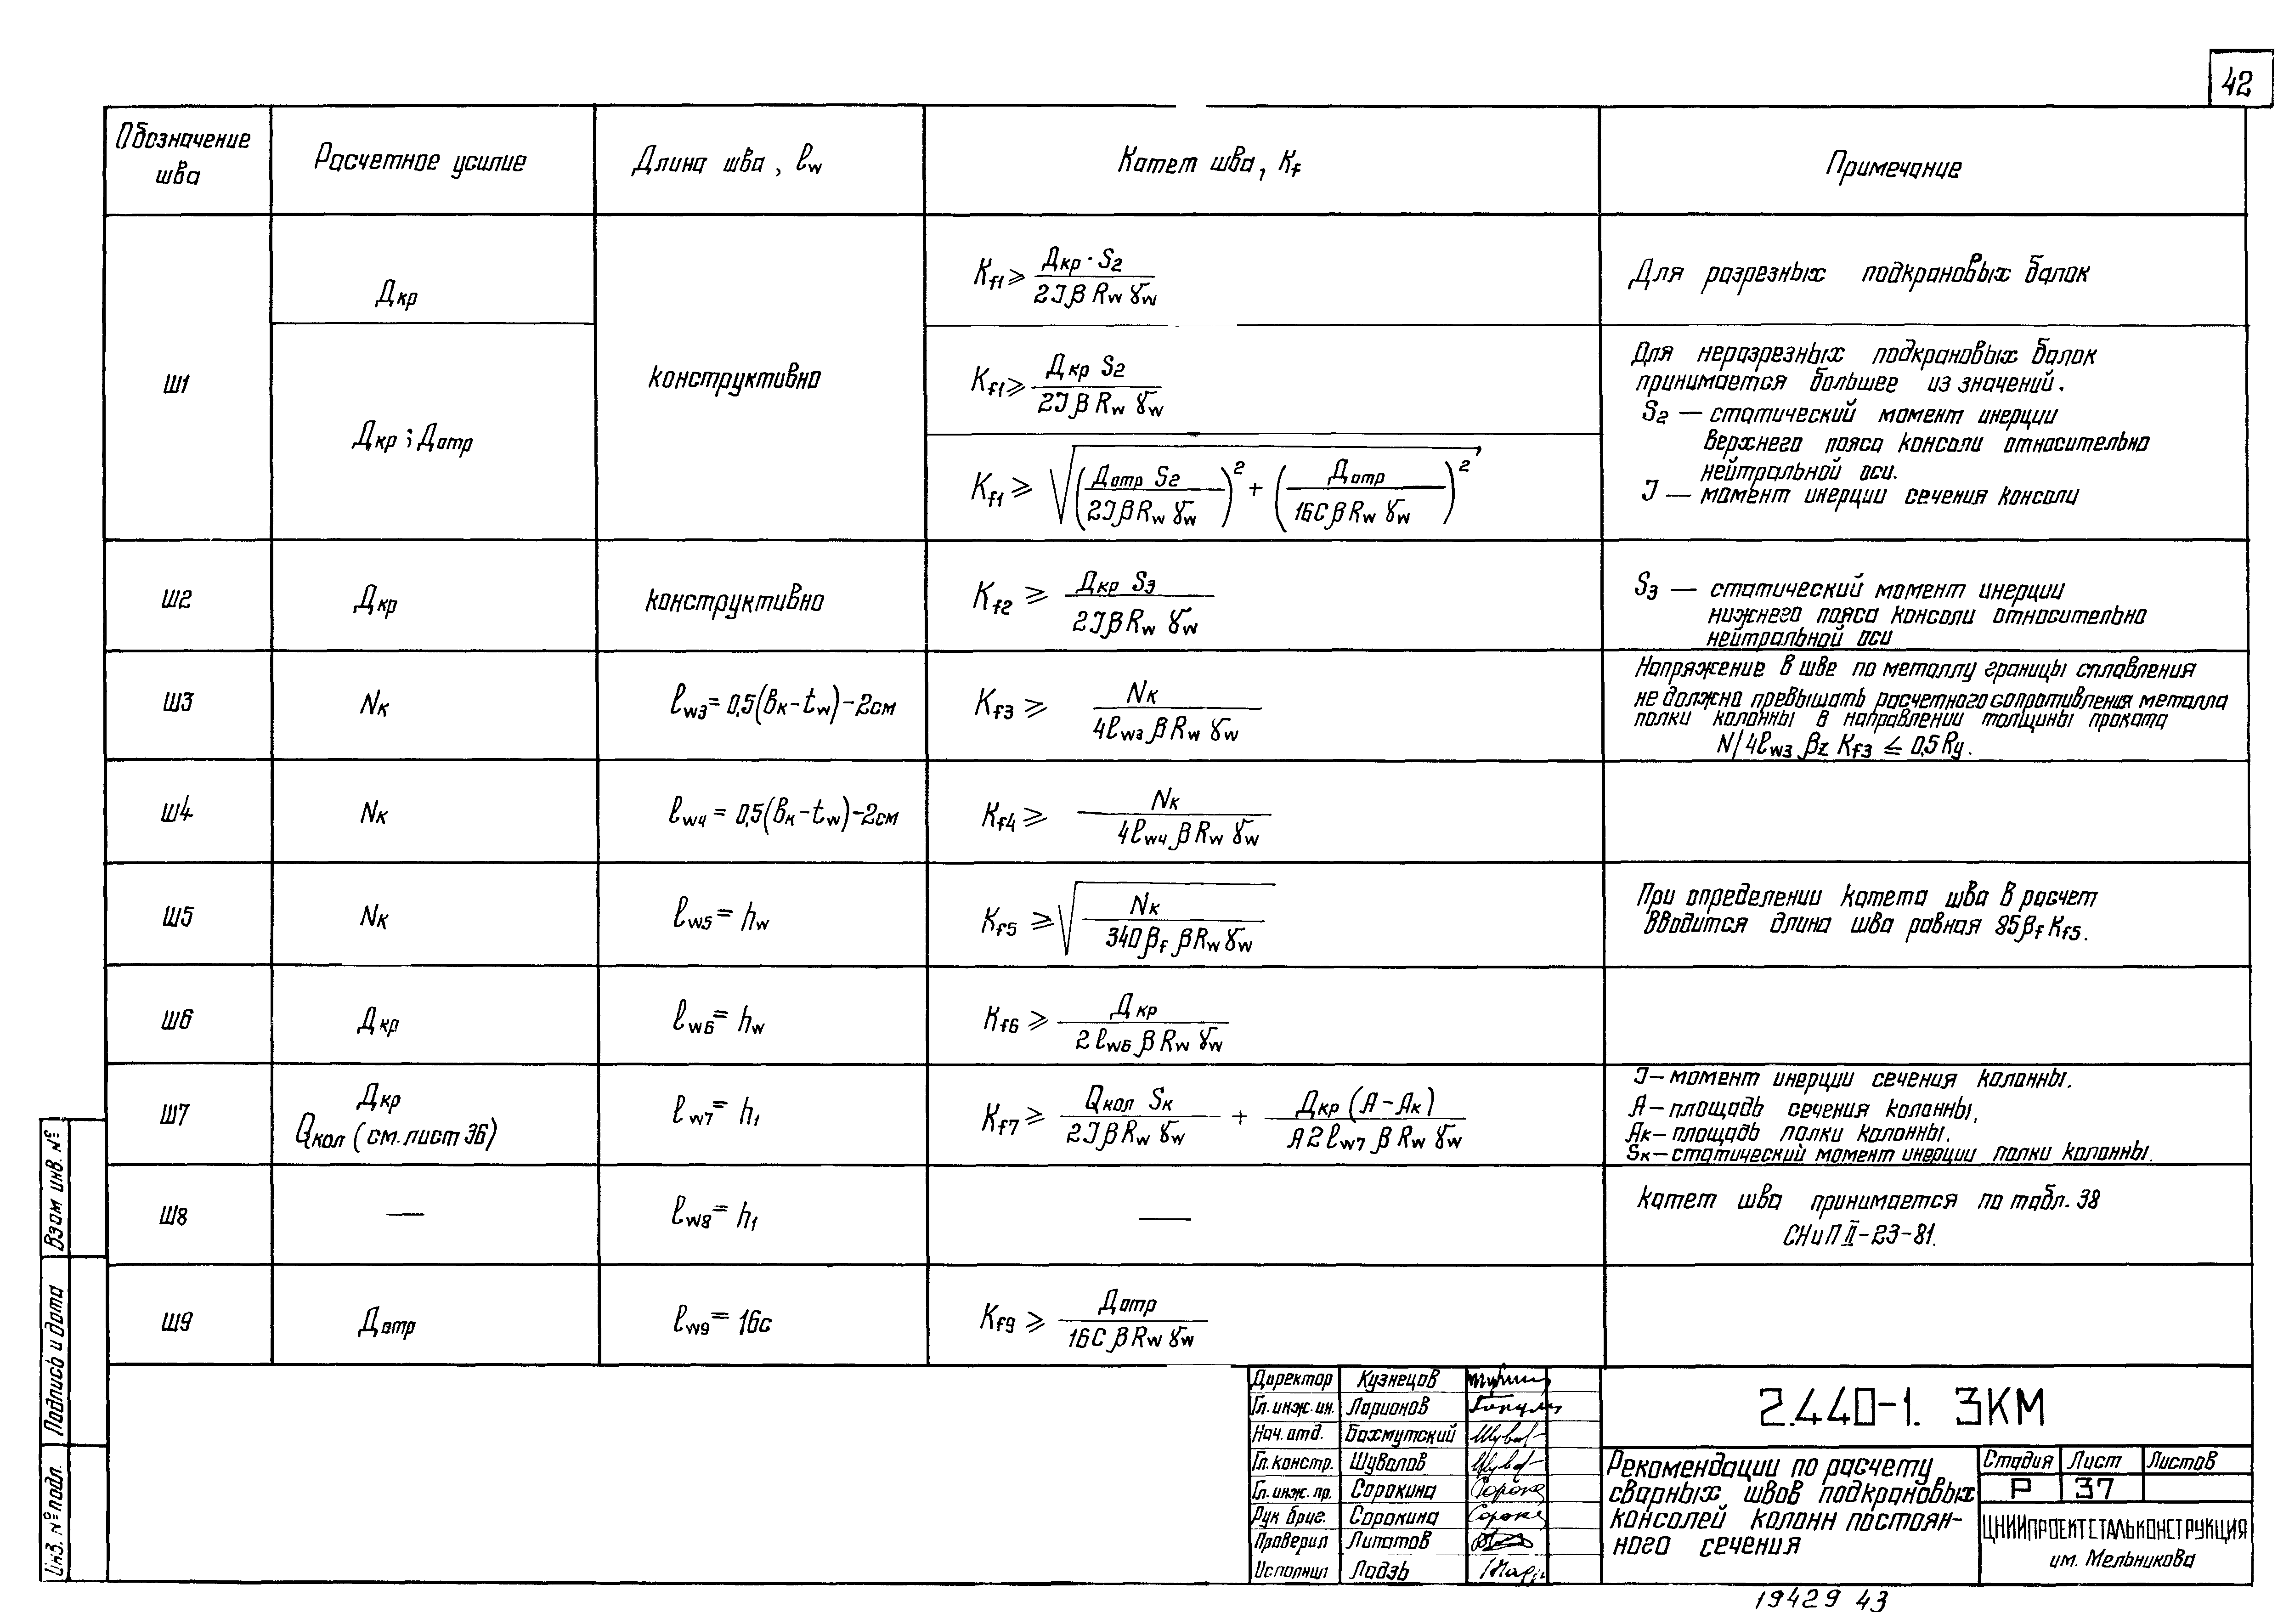 42
Обозначение шва
Расчетное усилие
Длина шва, ℓw
Катет шва, Kf
Примечание
Ш1
Дкр
конструктивно
Kf1 ≥ Дкр · S2 / 2Jβ Rw γw
Для разрезных подкрановых балок
Дкр ; Дотр
Kf1 ≥ Дкр S2 / 2Jβ Rw γw
Kf1 ≥ √((Дотр S2 / 2Jβ Rw γw)² + (Дотр / 16C β Rw γw)²)
Для неразрезных подкрановых балок
принимается большее из значений.
S2 — статический момент инерции
верхнего пояса консоли относительно
нейтральной оси.
J — момент инерции сечения консоли
Ш2
Дкр
конструктивно
Kf2 ≥ Дкр S3 / 2Jβ Rw γw
S3 — статический момент инерции
нижнего пояса консоли относительно
нейтральной оси
Ш3
Nк
ℓw3 = 0,5(bк – tw) – 2см
Kf3 ≥ Nк / 4ℓw3 β Rw γw
Напряжение в шве по металлу границы сплавления
не должно превышать расчетного сопротивления металла
полки колонны в направлении толщины проката
N/4ℓw3 βz Kf3 ≤ 0,5 Ry.
Ш4
Nк
ℓw4 = 0,5(bк – tw) – 2см
Kf4 ≥ Nк / 4ℓw4 β Rw γw
Ш5
Nк
ℓw5 = hw
Kf5 ≥ √(Nк / 340βf β Rw γw)
При определении катета шва в расчет
вводится длина шва равная 85βf Kf5.
Ш6
Дкр
ℓw6 = hw
Kf6 ≥ Дкр / 2ℓw6 β Rw γw
Ш7
Дкр
Qкол (см. лист 36)
ℓw7 = h1
Kf7 ≥ Qкол Sк / 2Jβ Rw γw + Дкр (А – Ак) / А 2ℓw7 β Rw γw
J – момент инерции сечения колонны.
А – площадь сечения колонны,
Ак – площадь полки колонны.
Sк – статический момент инерции полки колонны.
Ш8
—
ℓw8 = h1
—
Катет шва принимается по табл. 38
СНиП II-23-81.
Ш9
Дотр
ℓw9 = 16с
Kf9 ≥ Дотр / 16C β Rw γw
Взам инв. №
Подпись и дата
Инв. № подл.
Директор Кузнецов
Гл. инж. ин. Ларионов
Нач. отд. Бахмутский
Гл. констр. Шувалов
Гл. инж. пр. Сорокина
Рук бриг. Сорокина
Проверил Липатов
Исполнил Ладзь
2.440-1. 3КМ
Рекомендации по расчету
сварных швов подкрановых
консолей колонн постоян-
ного сечения
Стадия Лист Листов
Р 37
ЦНИИПРОЕКТСТАЛЬКОНСТРУКЦИЯ
им. Мельникова
19429 43